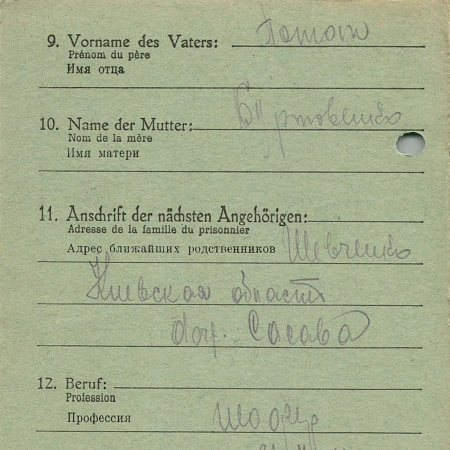 9. Vorname des Vaters: Потап
Prénom du père
Имя отца
10. Name der Mutter:
Nom de la mère
Имя матери
11. Anschrift der nächsten Angehörigen:
Adresse de la famille du prisonnier
Адрес ближайших родственников Шевченко
Киевская область
dorf. Сасава
12. Beruf:
Profession
Профессия